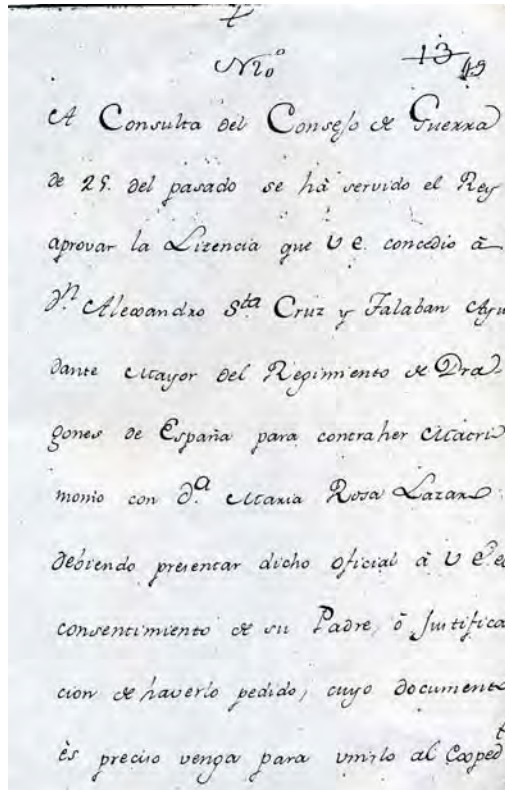 Nro
13 49
A Consulta del Consejo de Guerra
de 25. del pasado se há servido el Rey
aprovar la Lizencia que V E. concedio à
Dn. Alexandro Sta Cruz y Talaban Ayu
dante Mayor del Regimiento de Dra
gones de España para contraher Matri
monio con Da. Maria Rosa Lazaro
debiendo presentar dicho oficial à V E. el
consentimiento de su Padre, ò Justifica
cion de haverlo pedido, cuyo documento
ès preciso venga para unirlo al Exped
te